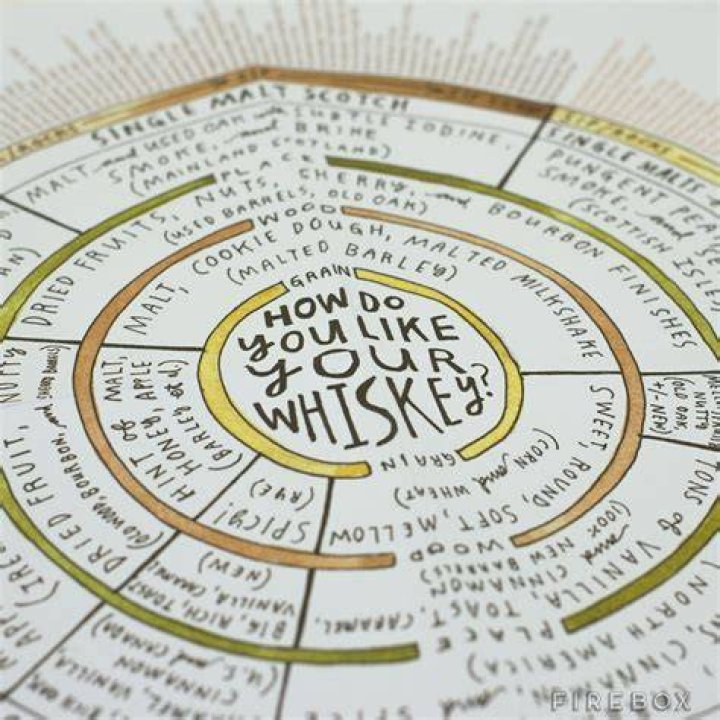 SIP
SIP/ROCKS
/ROCKS
SINGLE MALT SCOTCH
SINGLE MALTS
MALT and USED OAK with SUBTLE IODINE,
SMOKE, and BRINE
(MAINLAND SCOTLAND)
PUNGENT PEAT
SMOKE, and
(SCOTTISH ISLE
PLACE
DRIED FRUITS, NUTS, CHERRY, and BOURBON FINISHES
(USED BARRELS, OLD OAK)
WOOD
MALT, COOKIE DOUGH, MALTED MILKSHAKE
(MALTED BARLEY)
GRAIN
HOW DO
YOU LIKE
YOUR
WHISKEY?
GRAIN
SWEET, ROUND, SOFT, MELLOW
(CORN and WHEAT)
SPICY!
(RYE)
HINT of MALT,
HONEY, APPLE
(BARLEY et al.)
WOOD
NUTTY
(OLD OAK,
+/- NEW)
TONS of VANILLA,
CINNAMON
TOAST, CARAMEL
(100% NEW BARRELS)
BIG, RICH, TOAST
VANILLA, CARAMEL
(NEW)
DRIED FRUIT, NUTTY
(OLD WOOD, BOURBON, and SHERRY BARRELS)
PLACE
(NORTH AMERICA)
CINNAMON
(U.S. and CANADA)
CINNAMON
VANILLA,
FIREBOX